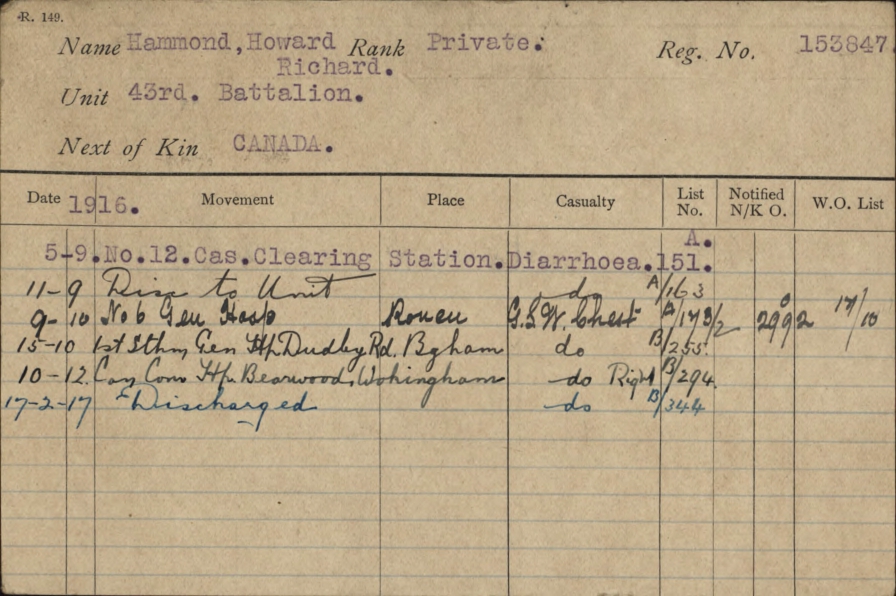 R. 149.
Name Hammond, Howard Rank Private. Reg. No. 153847.
Richard.
Unit 43rd. Battalion.
Next of Kin CANADA.
Date 1916. Movement Place Casualty List No. Notified N/K O. W.O. List
A.
5-9. No.12. Cas. Clearing Station. Diarrhoea. 151.
11-9 Disc to Unit do A/163
9-10 No 6 Gen Hosp Rouen G.S.W. Chest A/173/2 2992 17/10
15-10 1st Sthn Gen Hp Dudley Rd. Bgham do B/255.
10-12. Can Con Hp. Bearwood, Wokingham do Right B/294.
17-2-17 Discharged do B/344